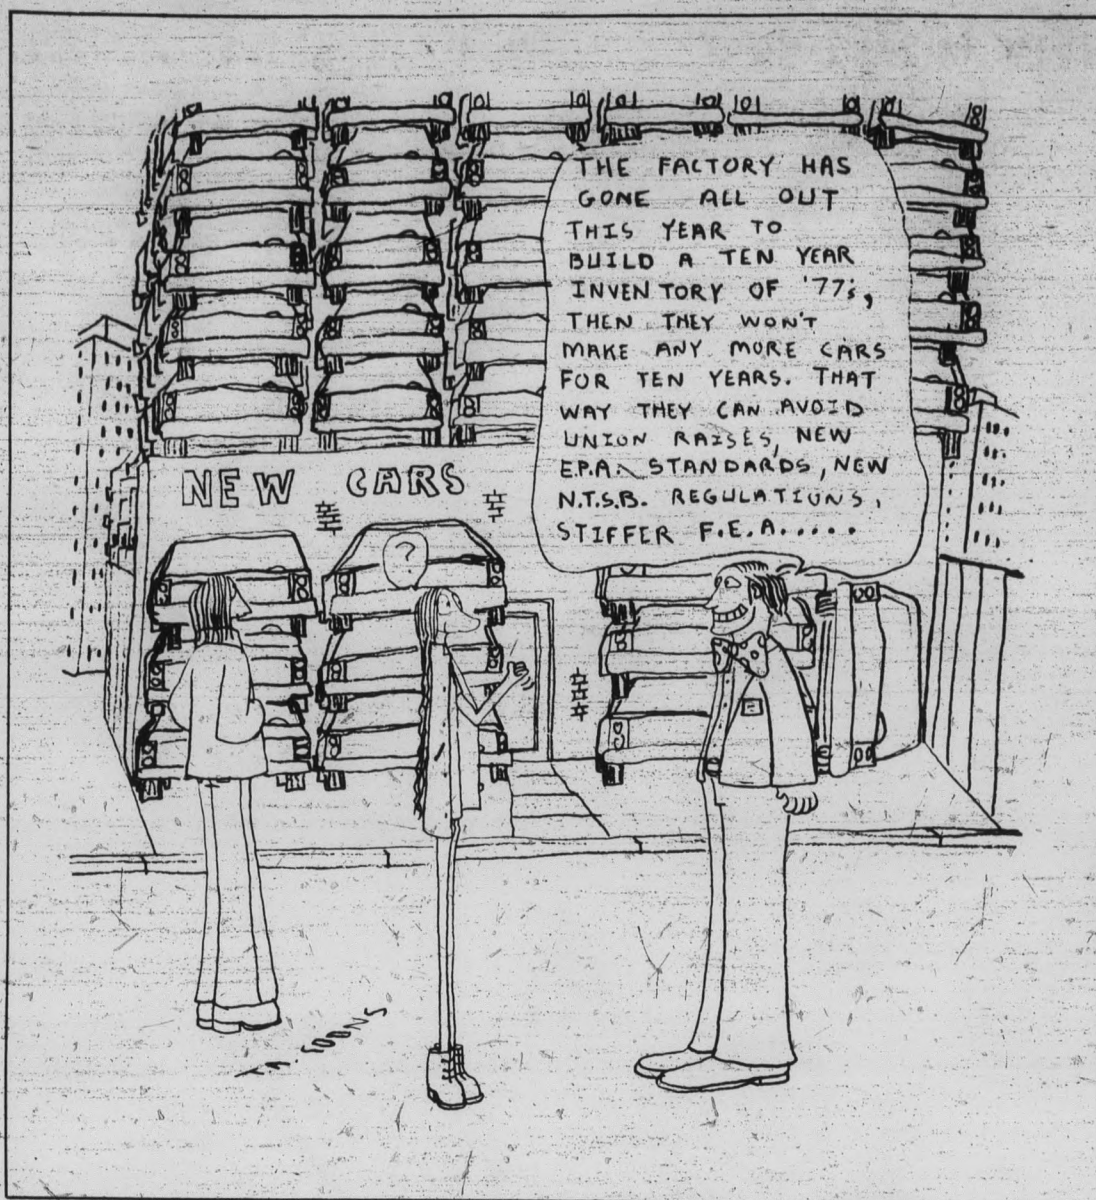 THE FACTORY HAS
GONE ALL OUT
THIS YEAR TO
BUILD A TEN YEAR
INVENTORY OF '77's,
THEN THEY WON'T
MAKE ANY MORE CARS
FOR TEN YEARS. THAT
WAY THEY CAN AVOID
UNION RAISES, NEW
E.P.A. STANDARDS, NEW
N.T.S.B. REGULATIONS,
STIFFER F.E.A.....
NEW CARS
?